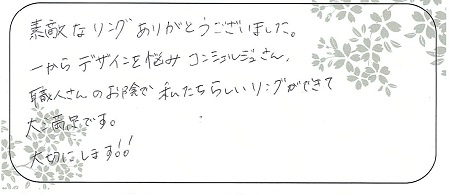 素敵なリングありがとうございました。
一からデザインを悩みコンシェルジュさん、
職人さんのお陰で私たちらしいリングができて
大満足です。
大切にします!!